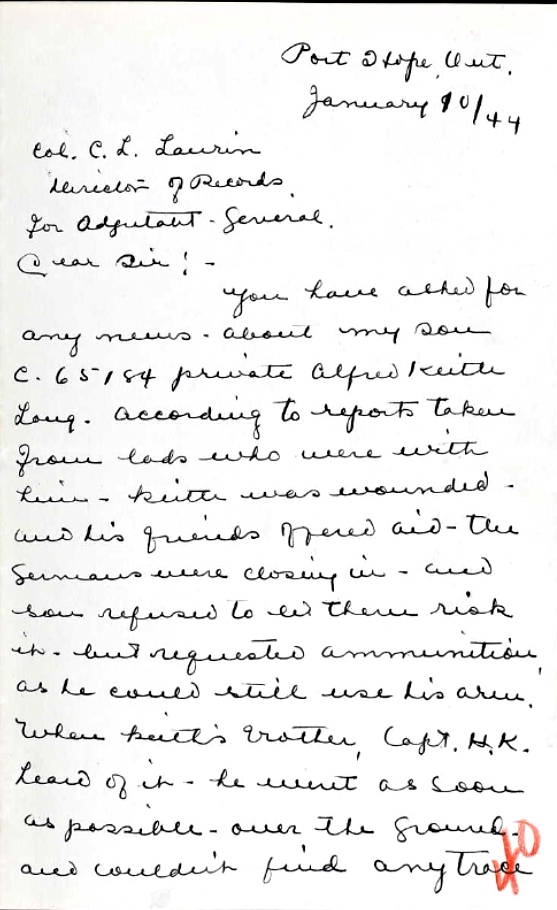 Port Hope, Ont.
January 10/44
Col. C. L. Laurin
Director of Records
for Adjutant-General.
Dear Sir! -
You have asked for
any news - about my son
C. 65184 private Alfred Keith
Long. According to reports taken
from lads who were with
him - Keith was wounded -
and his friends offered aid - the
Germans were closing in - and
son refused to let them risk
it - but requested ammunition,
as he could still use his arm.
When Keith's brother, Capt. H.K.
heard of it - he went as soon
as possible - over the ground -
and couldn't find any trace